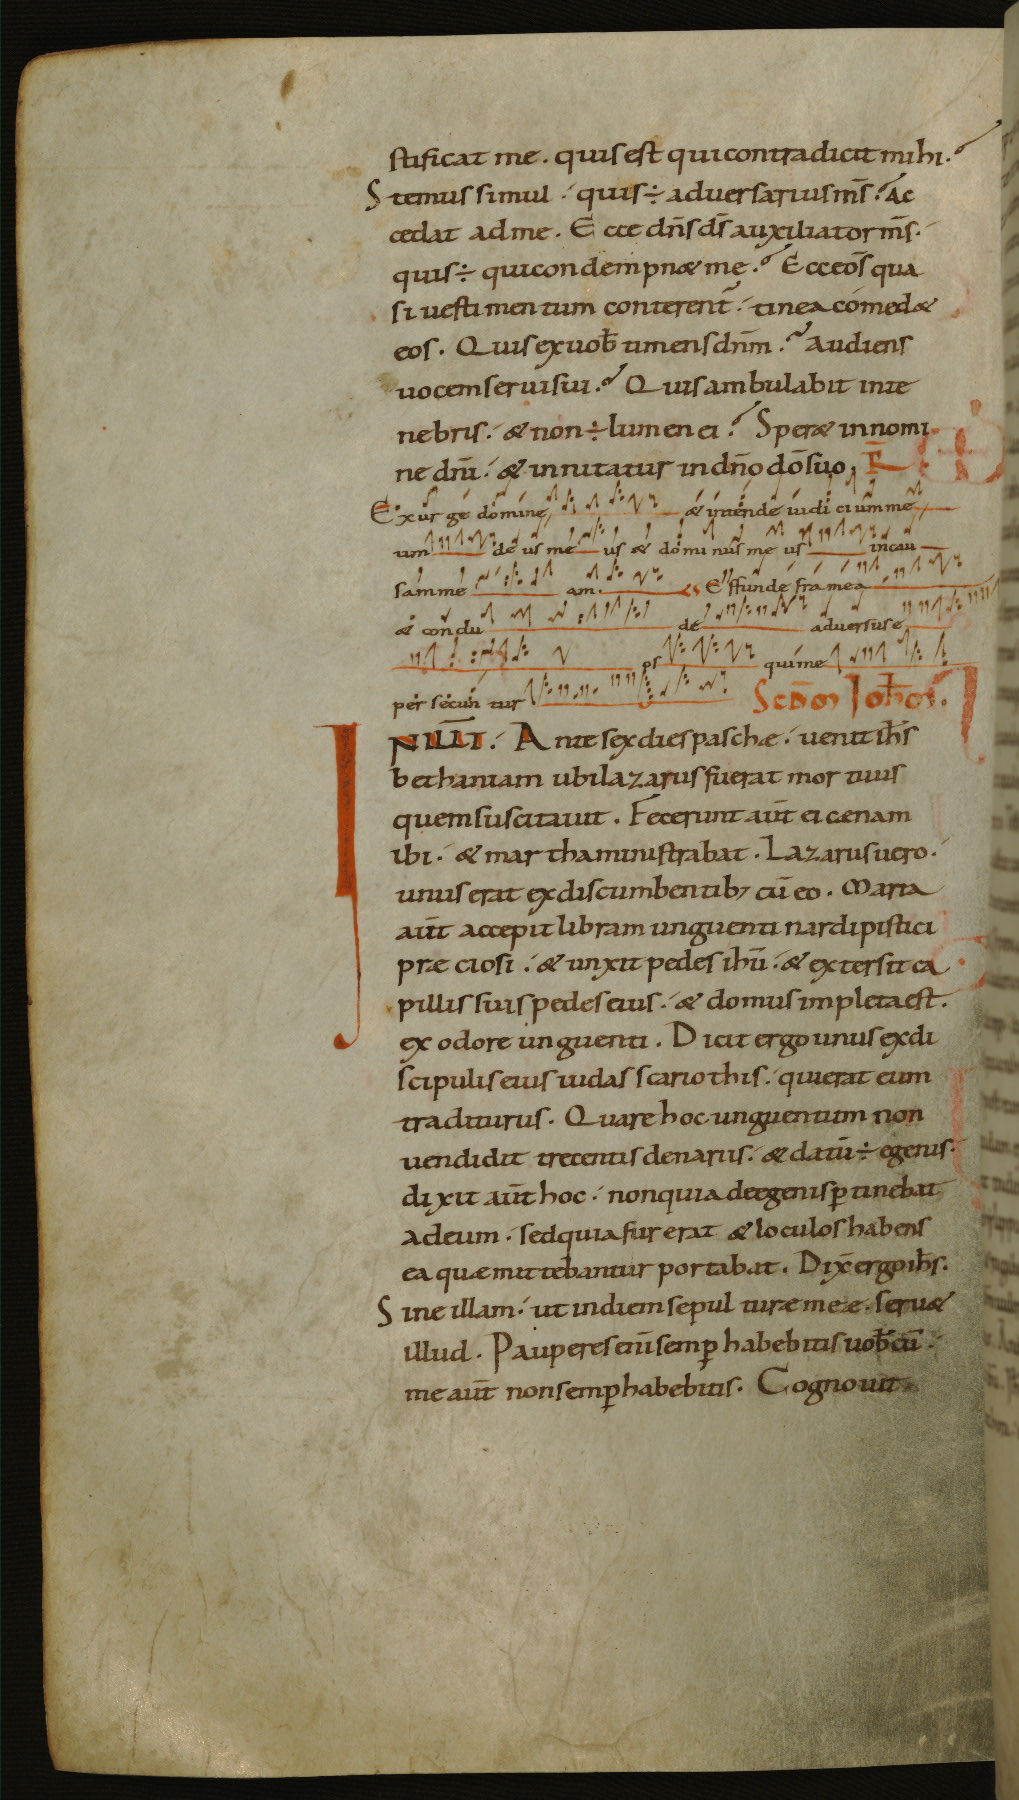 stificat me. quis est qui contradicit mihi.
Stemus simul. quis ÷ adversarius m̄s. Ac
cedat ad me. Ecce dn̄s ds̄ auxiliator m̄s.
quis ÷ qui condempnæ me. Ecce om̄s qua
si uestimentum conterent̄. tinea comedæ
eos. Quis ex uob̄ timens dn̄m. Audiens
uocem serui sui. Quis ambulabit in te
nebris. & non ÷ lumen ei. Speræ in nomi
ne dn̄i. & innitatur in dn̄o dō suo,
Exurge domine & intende iudicium me
um deus meus & dominus meus in cau
sam meam. Effunde frameа
& conclude adversus e
os qui me
persecuntur Scdm Ioh̄em.
IN ILLT̄. Ante sex dies paschæ. uenit ih̄s
bethaniam ubi lazarus fuerat mortuus
quem suscitauit. Fecerunt aūt ei cænam
ibi. & martha ministrabat. Lazarus uero.
unus erat ex discumbentib; cū eo. Maria
aūt accepit libram unguenti nardi pistici
præciosi. & unxit pedes ih̄u. & extersit ca
pillis suis pedes eius. & domus impleta est.
ex odore unguenti. Dicit ergo unus ex di
scipulis eius iudas scariothis. qui erat eum
traditurus. Quare hoc unguentum non
uendidit trecentis denariis. & datū ÷ egenis.
dixit aūt hoc. non quia de egenis p̱tinebat
ad eum. sed quia fur erat & loculos habens
ea quæ mittebantur portabat. Dix̄ ergo ih̄s.
Sine illam. ut in diem sepulturæ meæ. seruæ
illud. Pauperes enī semp̱ habebitis uob̄cū.
me aūt non semp̱ habebitis. Cognouit